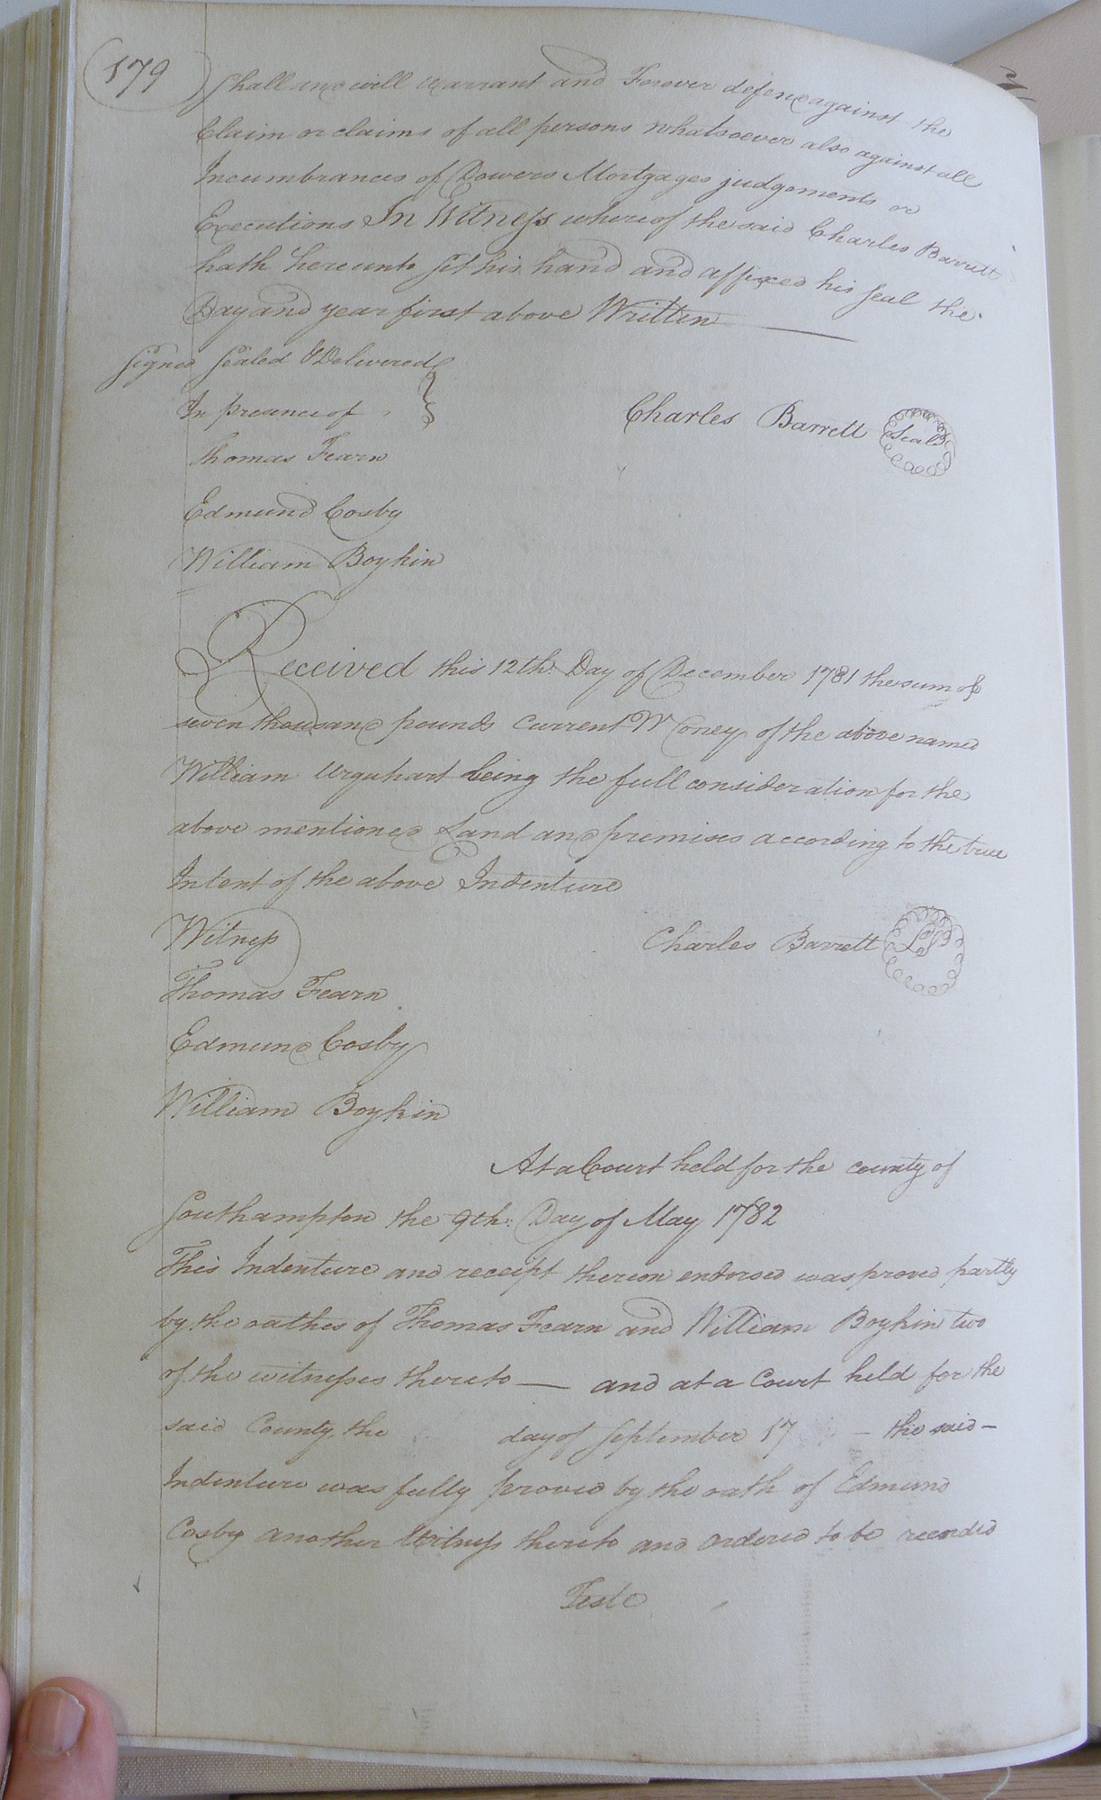 179
Shall and will Warrant and Forever defend against the
Claim or claims of all persons whatsoever also against all
Incumbrances of Dowers Mortgages judgements or
Executions In Witness whereof the said Charles Barrett
hath hereunto set his hand and affixed his seal the
Day and year first above Written
Signed Sealed & Delivered
In presence of
Charles Barrett Seal
Thomas Fearn
Edmund Cosby
William Boykin
Received this 12th. Day of December 1781 the sum of
seven thousand pounds Current Money of the above named
William Urquhart being the full consideration for the
above mentioned Land and premises according to the true
Intent of the above Indenture
Witness
Charles Barrett LS
Thomas Fearn
Edmund Cosby
William Boykin
At a Court held for the county of
Southampton the 9th. Day of May 1782
This Indenture and receipt thereon endorsed was proved partly
by the oathes of Thomas Fearn and William Boykin two
of the witnesses thereto — and at a Court held for the
said County the day of September 17 – the said –
Indenture was fully proved by the oath of Edmund
Cosby another Witness thereto and ordered to be recorded
Teste